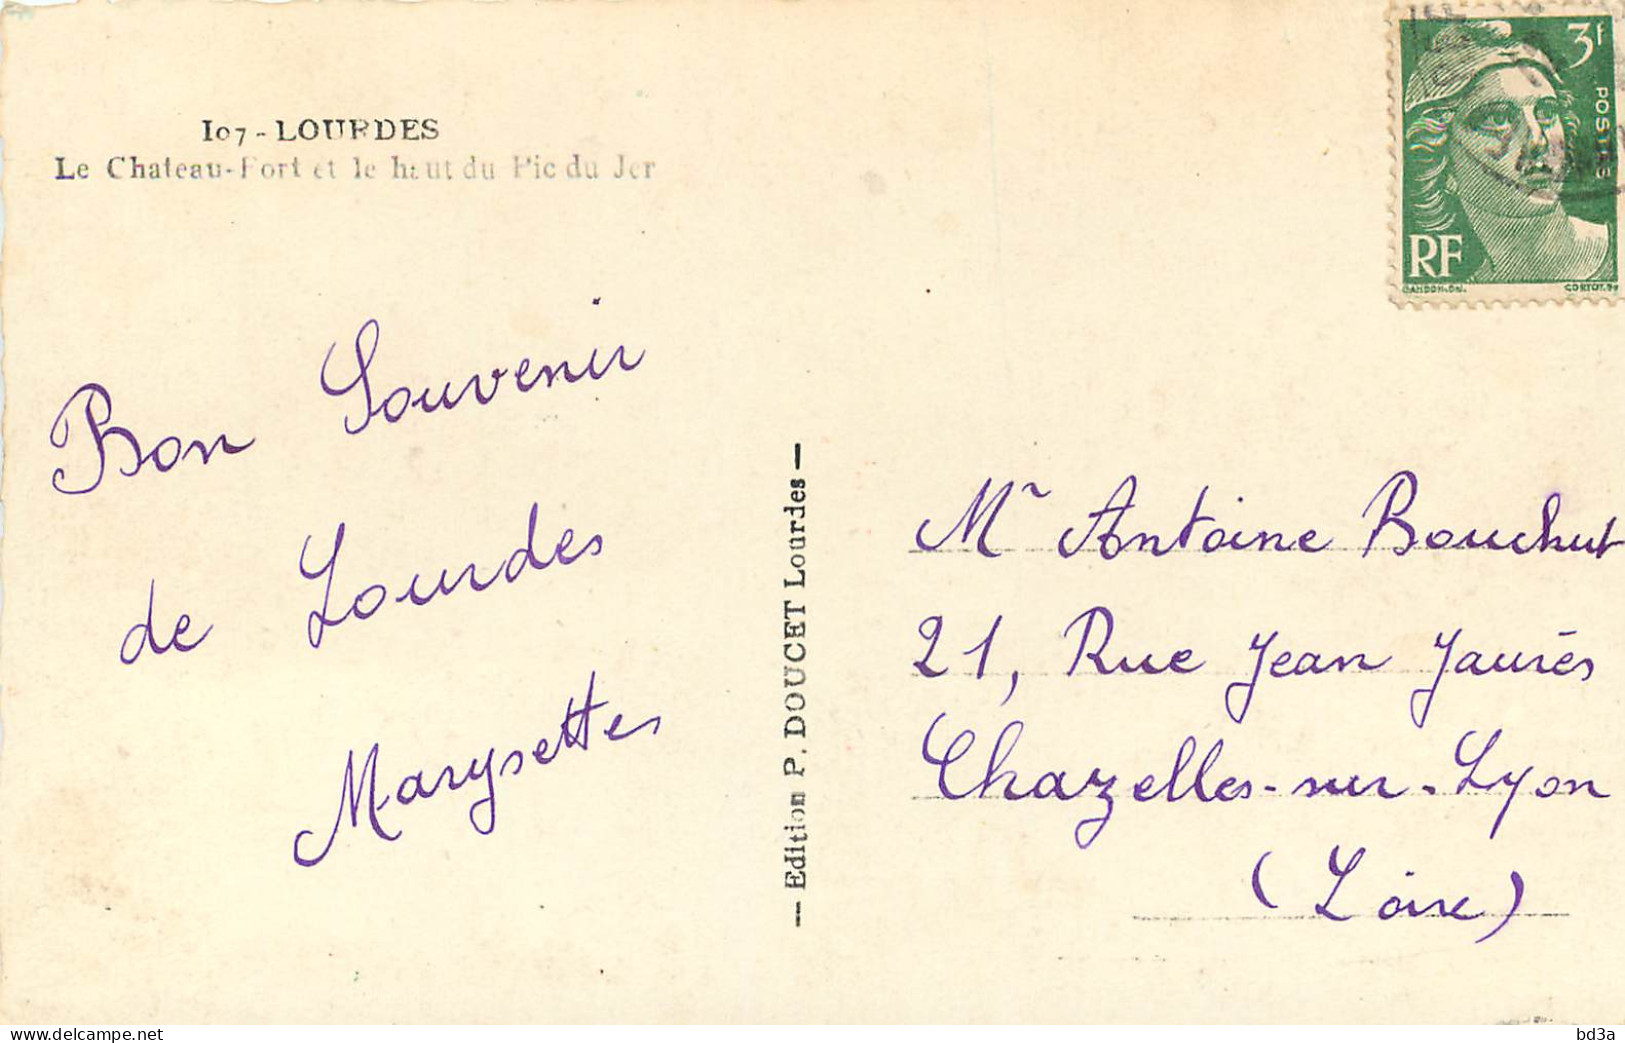 107 - LOURDES
Le Chateau-Fort et le haut du Pic du Jer
Bon Souvenir
de Lourdes
Marysettes
— Edition P. DOUCET Lourdes —
3f
POSTES
RF
GANDON.DEL.
CORTOT.SC
Mr Antoine Bouchut
21, Rue Jean Jaurès
Chazelles-sur-Lyon
(Loire)
www.delcampe.net
bd3a